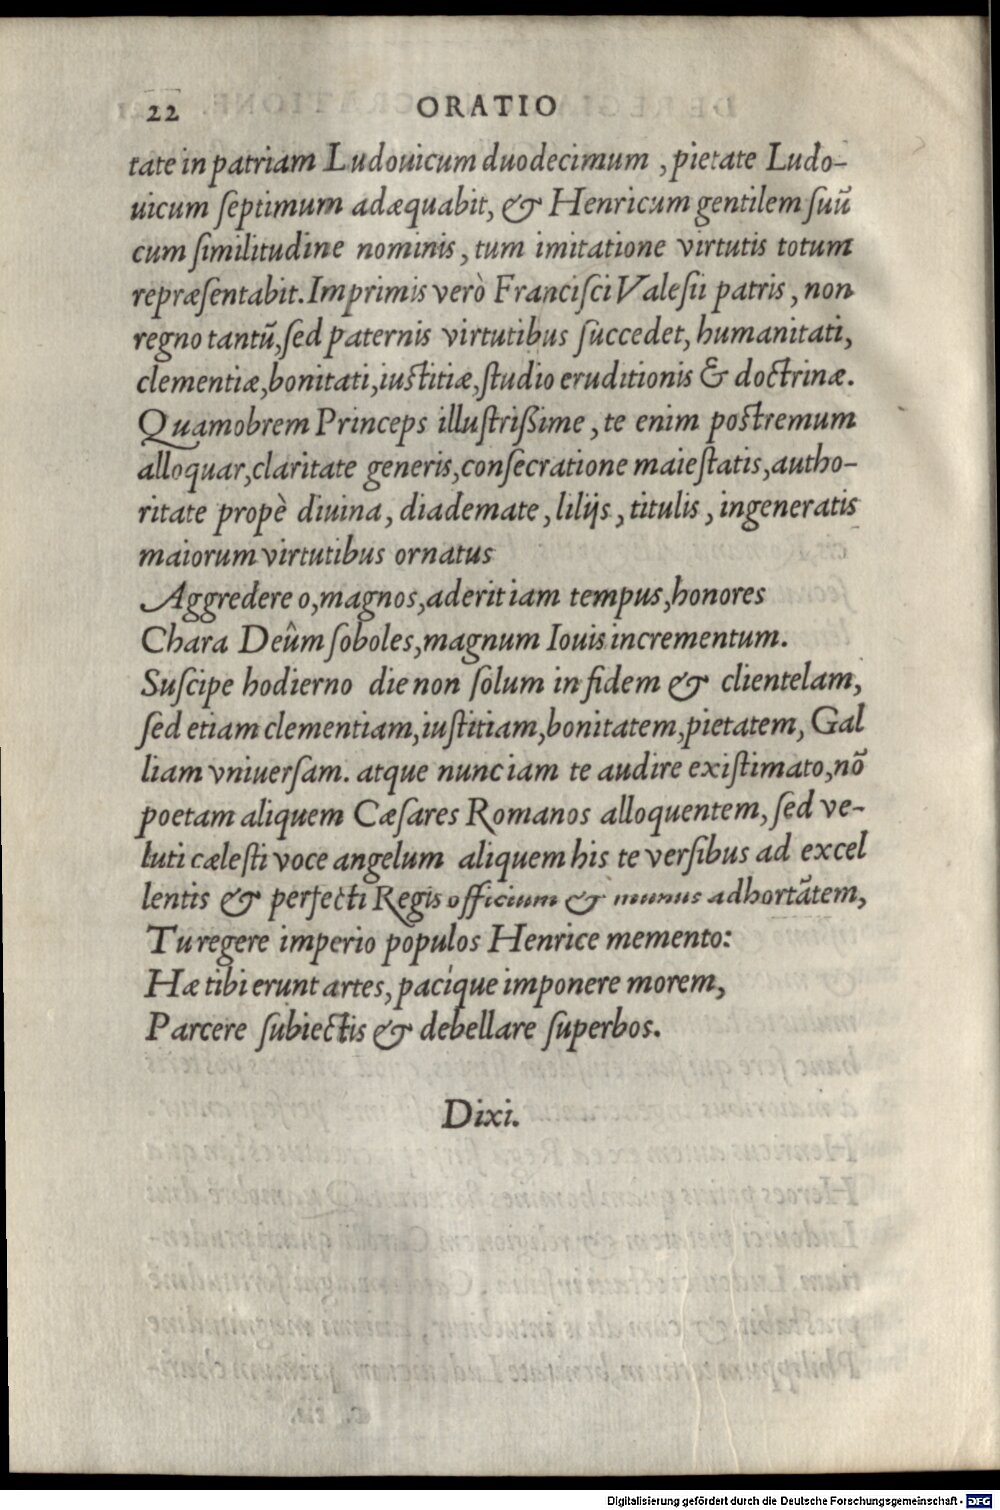 22 ORATIO
tate in patriam Ludouicum duodecimum, pietate Ludo-
uicum ſeptimum adæquabit, & Henricum gentilem ſuũ
cum ſimilitudine nominis, tum imitatione virtutis totum
repræſentabit. Imprimis verò Franciſci Valeſii patris, non
regno tantũ, ſed paternis virtutibus ſuccedet, humanitati,
clementiæ, bonitati, iuſtitiæ, ſtudio eruditionis & doctrinæ.
Quamobrem Princeps illuſtriſsime, te enim poſtremum
alloquar, claritate generis, conſecratione maieſtatis, autho-
ritate propè diuina, diademate, lilijs, titulis, ingeneratis
maiorum virtutibus ornatus
Aggredere o, magnos, aderit iam tempus, honores
Chara Deûm ſoboles, magnum Iouis incrementum.
Suſcipe hodierno die non ſolum in fidem & clientelam,
ſed etiam clementiam, iuſtitiam, bonitatem, pietatem, Gal
liam vniuerſam. atque nunc iam te audire exiſtimato, nõ
poetam aliquem Cæſares Romanos alloquentem, ſed ve-
luti cæleſti voce angelum aliquem his te verſibus ad excel
lentis & perfecti Regis officium & munus adhortãtem,
Tu regere imperio populos Henrice memento:
Hæ tibi erunt artes, pacíque imponere morem,
Parcere ſubiectis & debellare ſuperbos.
Dixi.
Digitalisierung gefördert durch die Deutsche Forschungsgemeinschaft - DFG